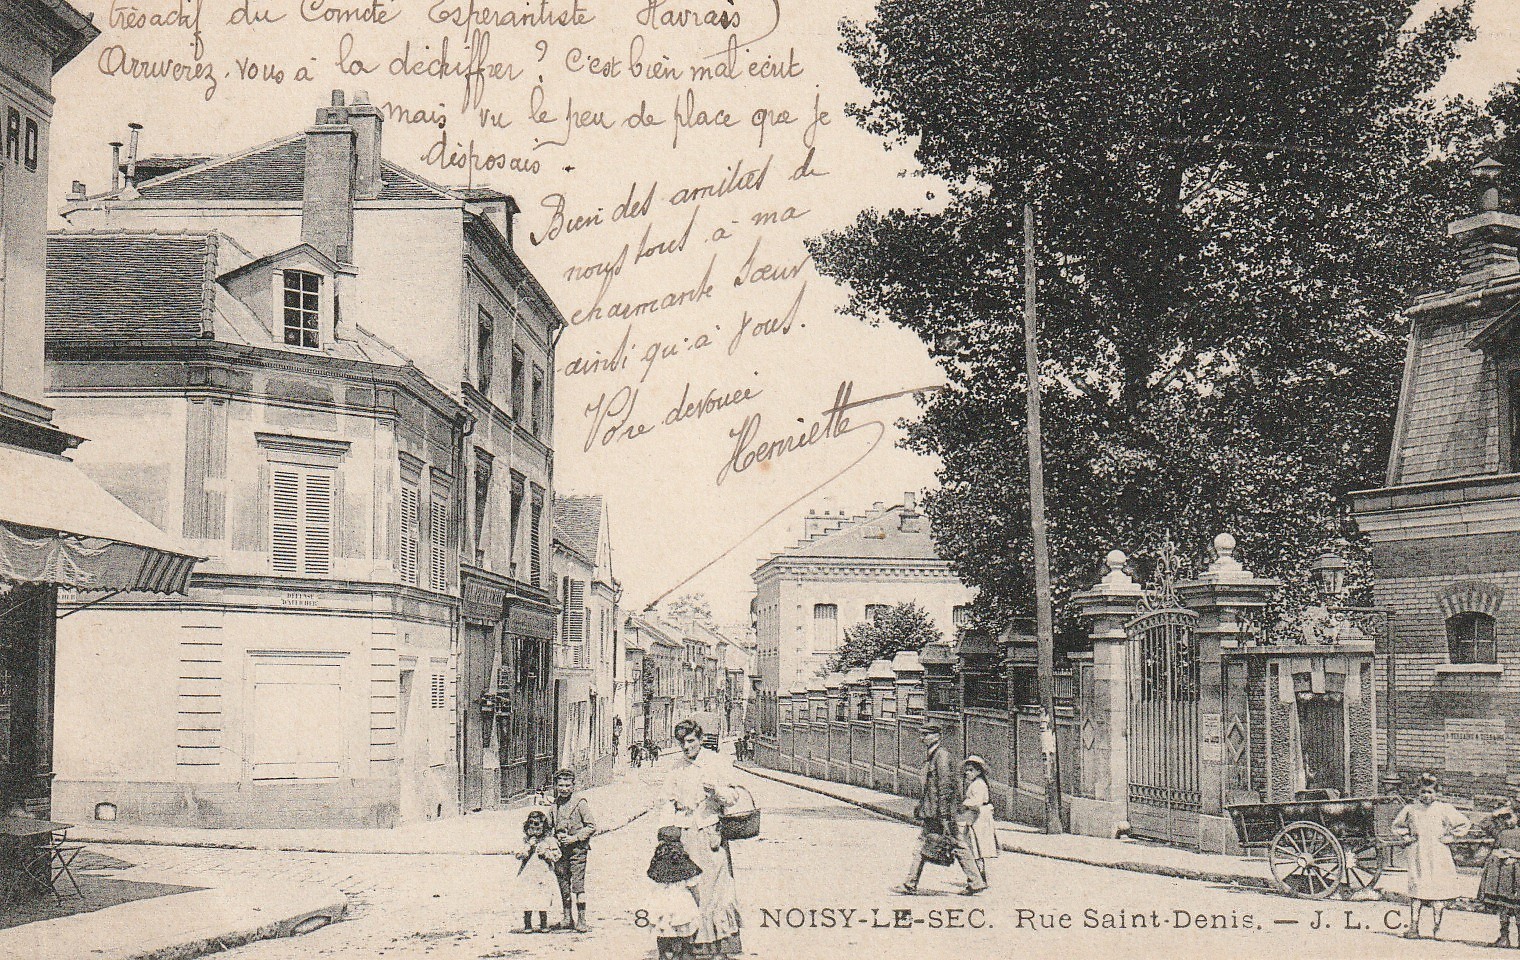 trèsactif du Comité Esperantiste Havrais)
Arriverez-vous à la déchiffrer? C'est bien mal écrit
mais vu le peu de place que je
disposais.
Bien des amitiés de
nous tous à ma
charmante sœur
ainsi qu'à vous.
Votre dévouée
Henriette
RD
DÉFENSE
D'AFFICHER
8. NOISY-LE-SEC. Rue Saint-Denis. — J. L. C.